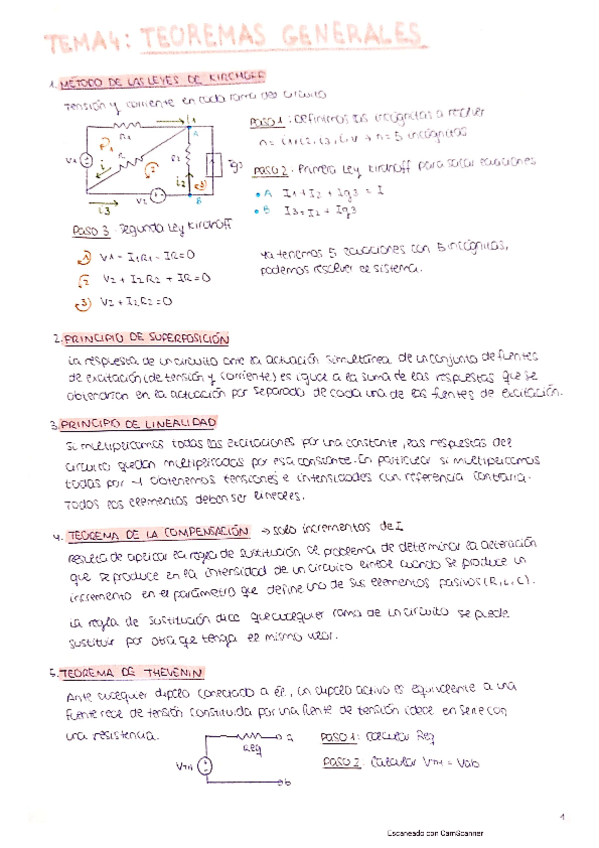 TEMA 4: TEOREMAS GENERALES
1. MÉTODO DE LAS LEYES DE KIRCHOFF
Tensión y corriente en cada rama del circuito
PASO 1: Definimos las incógnitas a resolver
n = i1, i2, i3, i, v → n = 5 incógnitas
PASO 2. Primera Ley Kirchoff para sacar ecuaciones
• A I1 + I2 + Ig3 = I
• B I3 = I2 + Ig3
R1
I1
A
V1
R
i
R2
I2
Ig3
I3
V2
B
PASO 3. Segunda Ley Kirchoff
1 V1 - I1R1 - IR = 0
2 V2 + I2R2 + IR = 0
3 V2 + I2R2 = 0
Ya tenemos 5 ecuaciones con 5 incógnitas,
podemos resolver el sistema.
2. PRINCIPIO DE SUPERPOSICIÓN
La respuesta de un circuito ante la actuación simultánea de un conjunto de fuentes
de excitación (de tensión y corriente) es igual a la suma de las respuestas que se
obtendrían en la actuación por separado de cada una de las fuentes de excitación.
3. PRINCIPIO DE LINEALIDAD
Si multiplicamos todas las excitaciones por una constante, las respuestas del
circuito quedan multiplicadas por esa constante. En particular si multiplicamos
todas por -1 obtenemos tensiones e intensidades con referencia contraria.
Todos los elementos deben ser lineales.
4. TEOREMA DE LA COMPENSACIÓN → solo incrementos de I
Resulta de aplicar la regla de sustitución al problema de determinar la alteración
que se produce en la intensidad de un circuito lineal cuando se produce un
incremento en el parámetro que define uno de sus elementos pasivos (R, L, C).
La regla de sustitución dice que cualquier rama de un circuito se puede
sustituir por otra que tenga el mismo valor.
5. TEOREMA DE THEVENIN
Ante cualquier dipolo conectado a él, un dipolo activo es equivalente a una
fuente real de tensión constituida por una fuente de tensión ideal en serie con
una resistencia.
Req
a
VTH
b
PASO 1: Calcular Req
PASO 2. Calcular VTH = Vab
1
Escaneado con CamScanner